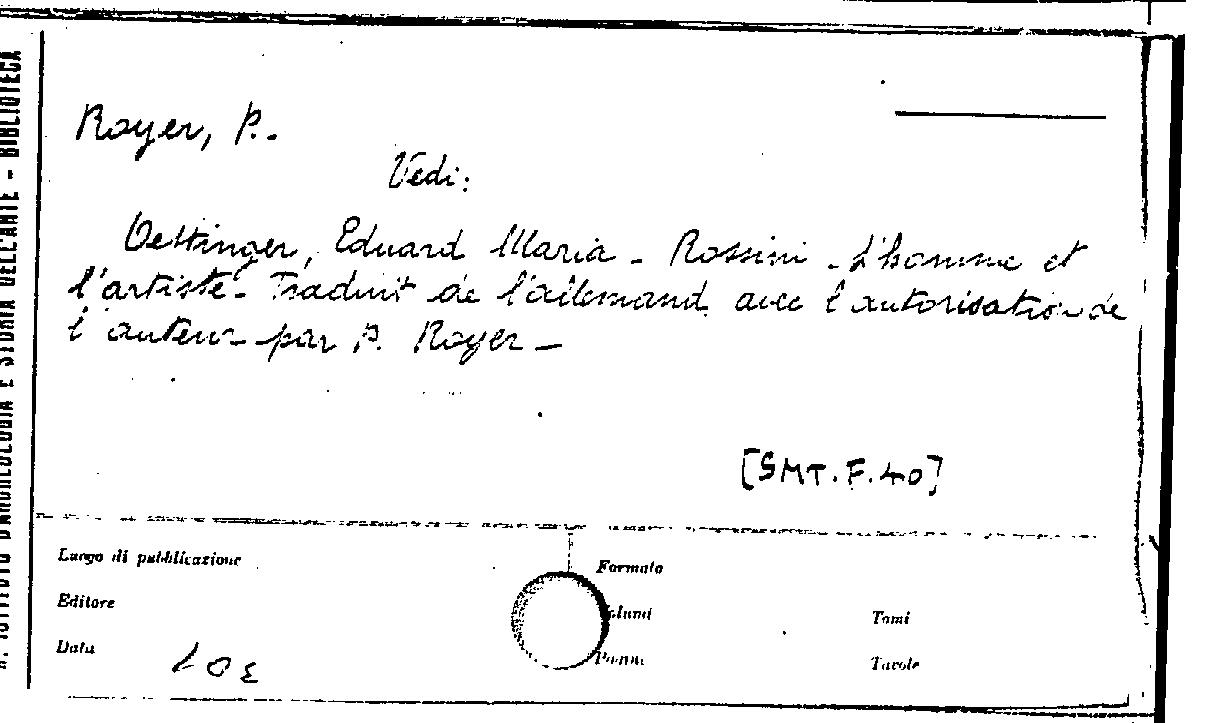 Royer, P.-
Vedi:
Oettinger, Eduard Maria - Rossini - L'homme et
l'artiste - Traduit de l'allemand avec l'autorisation de
l'auteur par P. Royer -
[SMT.F.40]
Luogo di pubblicazione
Formato
Editore
Volumi
Tomi
Data
Pagine
Tavole
R. ISTITUTO D'ARCHEOLOGIA E STORIA DELL'ARTE - BIBLIOTECA